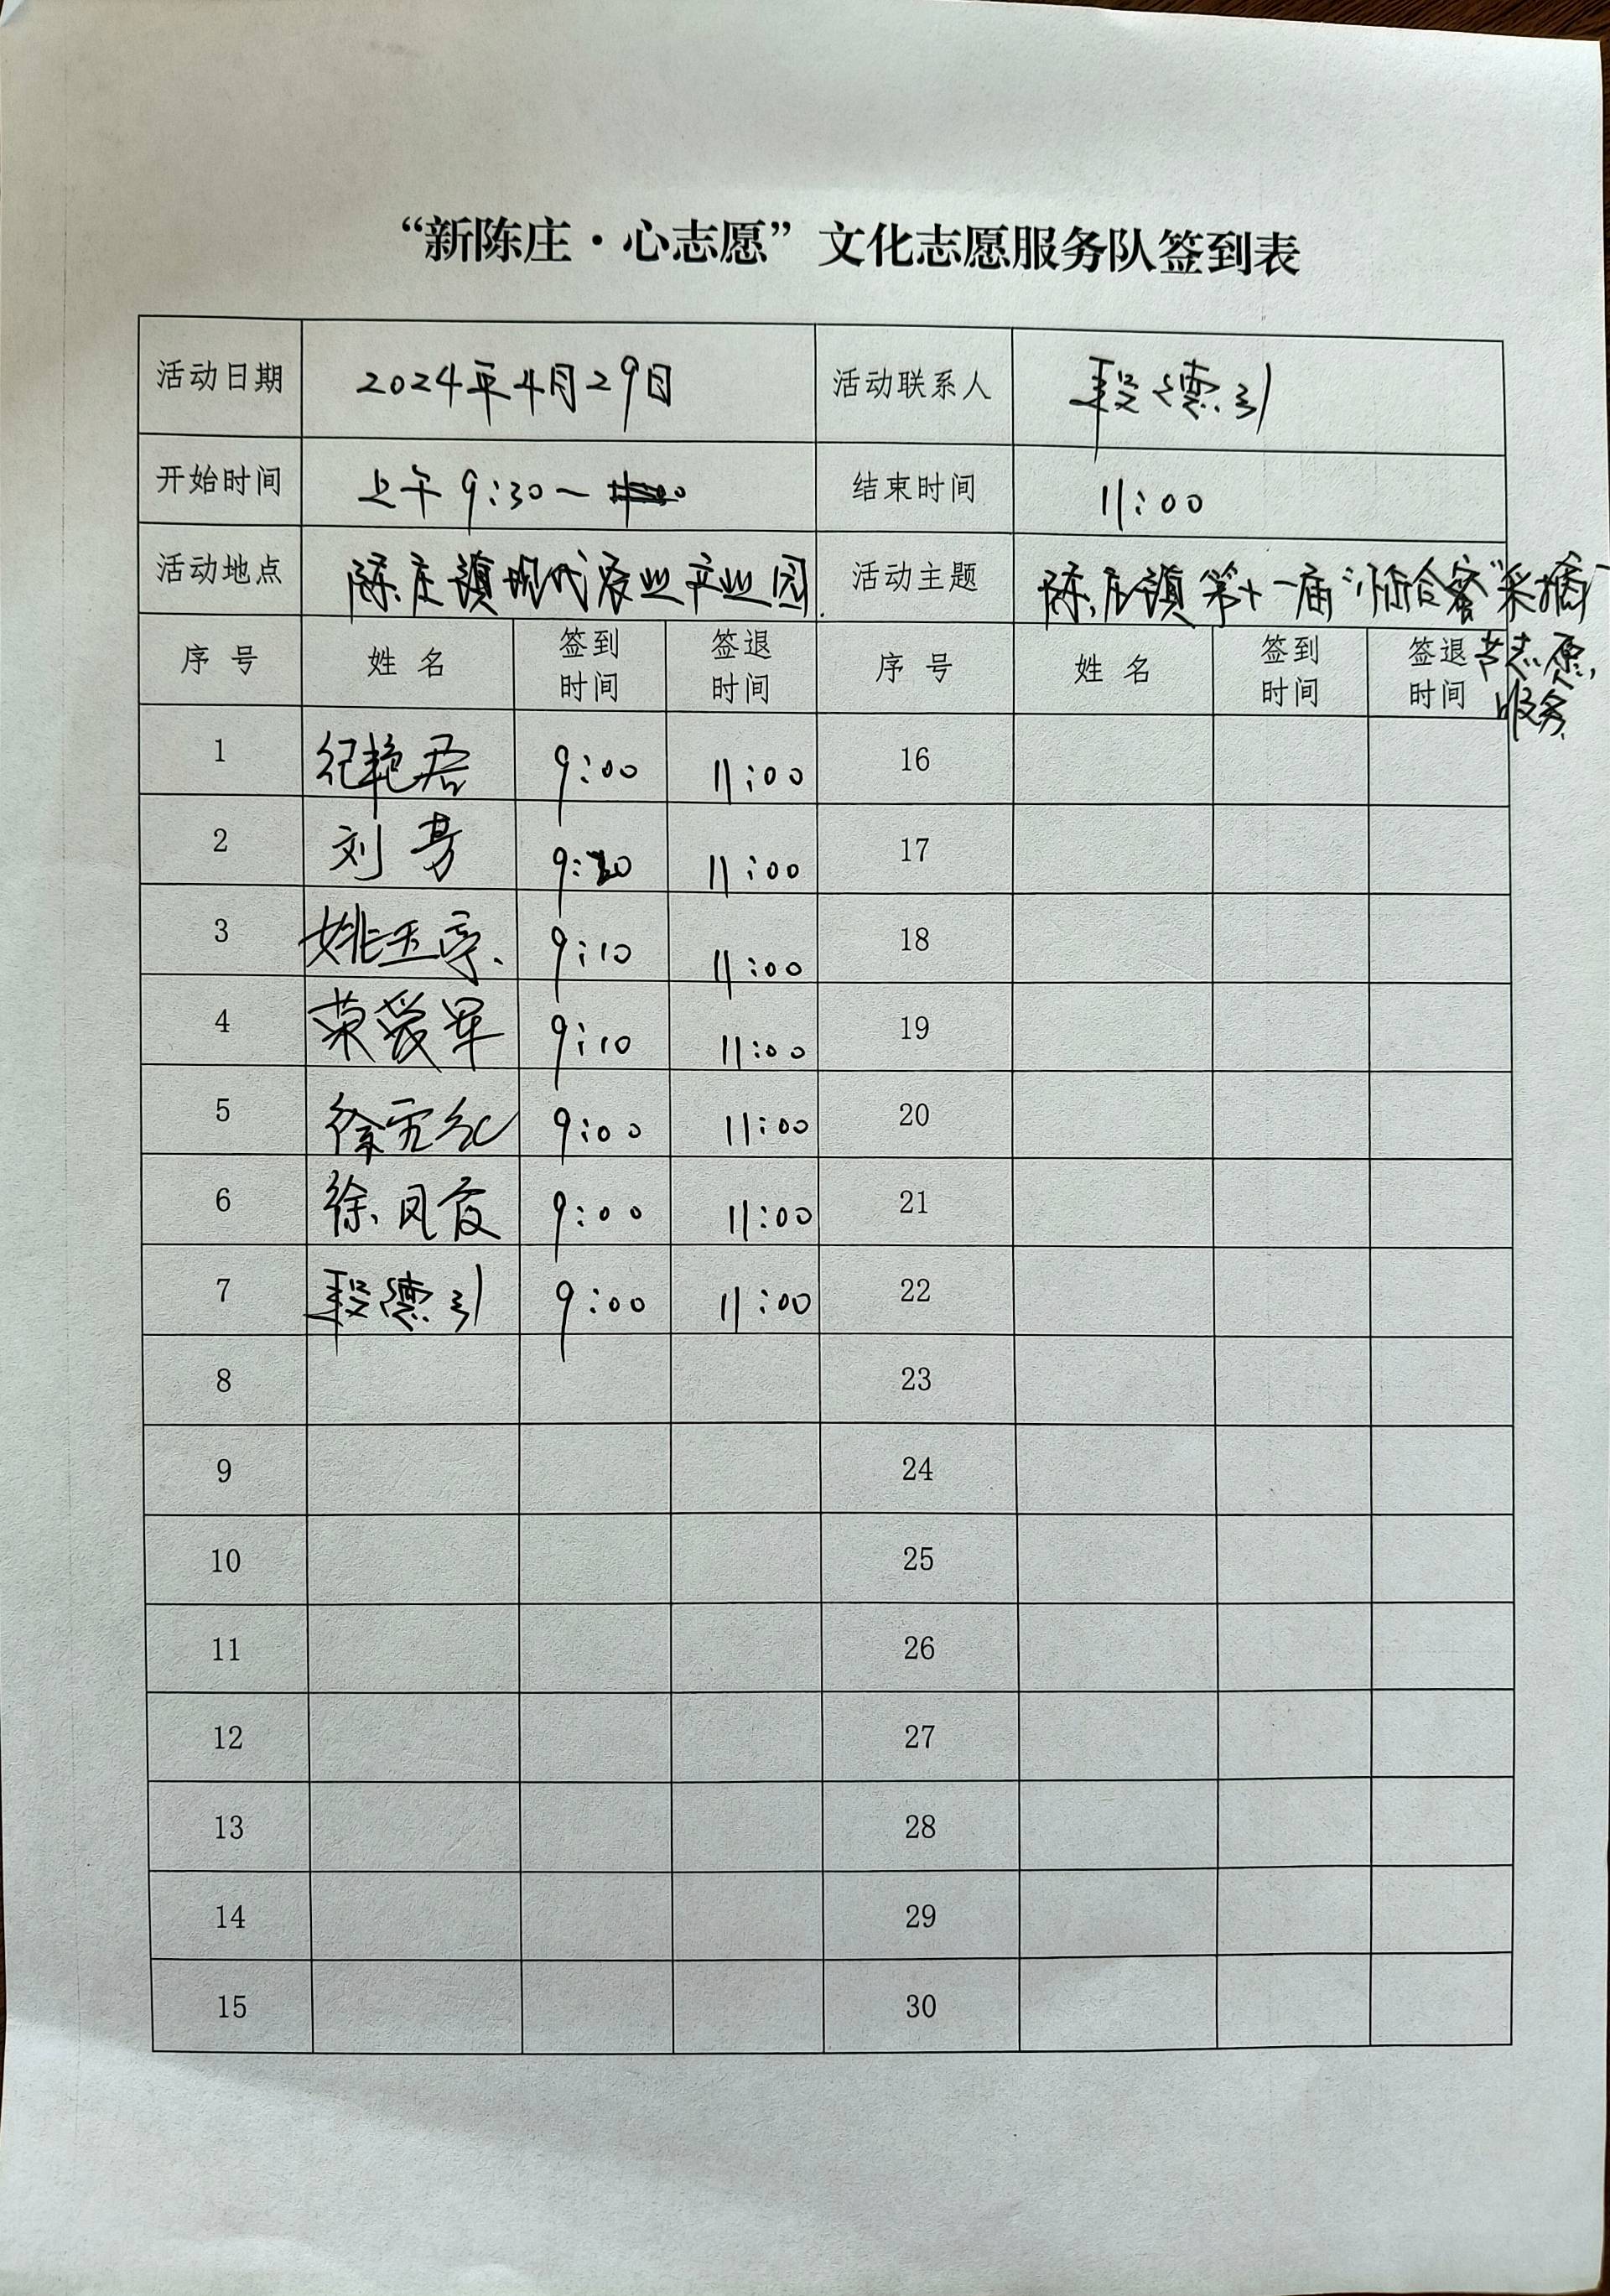 “新陈庄·心志愿”文化志愿服务队签到表
活动日期 2024年4月29日 活动联系人 段德引
开始时间 上午9:30~ 结束时间 11:00
活动地点 陈庄镇现代农业产业园. 活动主题 陈庄镇第十一届“恒合蜜”采摘
节志愿
服务
序号 姓名 签到时间 签退时间 序号 姓名 签到时间 签退时间
1 纪艳君 9:00 11:00 16
2 刘芳 11:00 17
3 姚玉亭 9:10 11:00 18
4 荣爱军 9:10 11:00 19
5 徐 9:00 11:00 20
6 徐凤霞 9:00 11:00 21
7 段德引 9:00 11:00 22
8 23
9 24
10 25
11 26
12 27
13 28
14 29
15 30